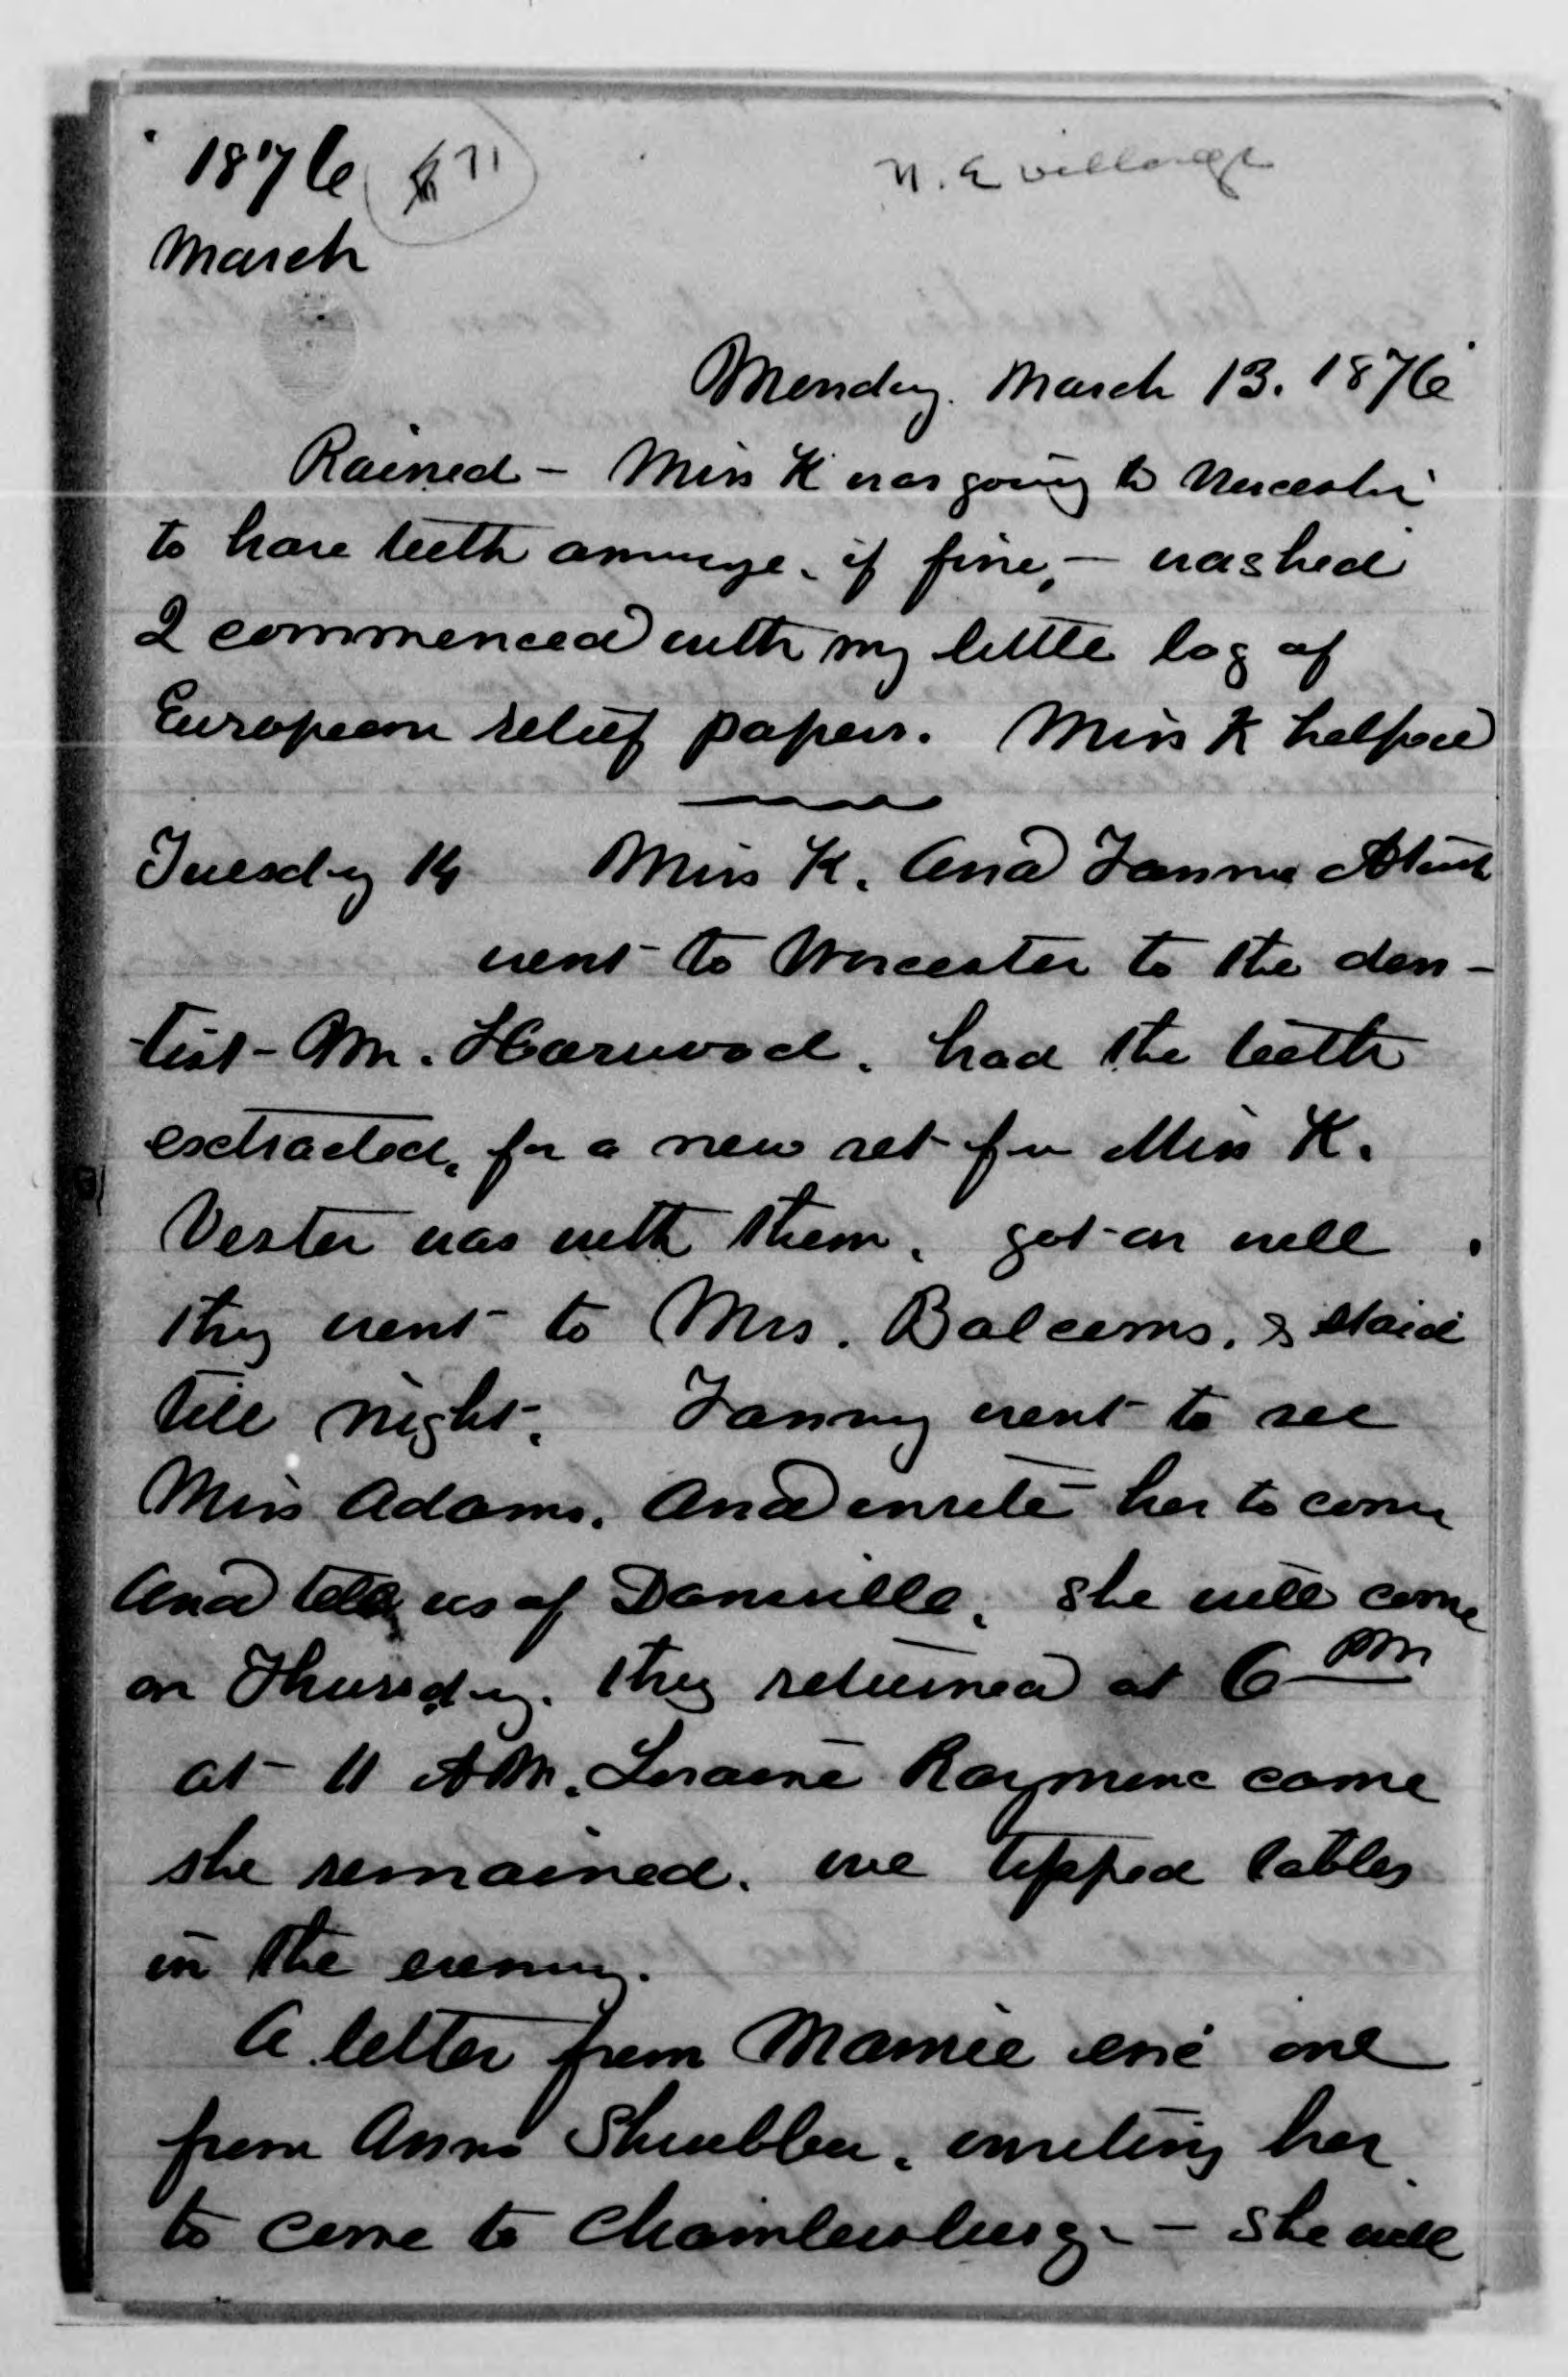 1876 71
N. E village
March
Monday. March 13. 1876
Rained - Miss K was going to Worcester
to have teeth if fine, - washed
I commenced with my little log of
European relief papers. Miss K helped
Tuesday 14 Miss K. and Fannie
went to Worcester to the den-
tist - Mr. Harwood. had the teeth
extracted, for a new set for Miss K.
Vester was with them. got on well
they went to Mrs. Balcoms. & staid
till night. Fanny went to see
Miss Adams. and invite her to come
and tell us of Dansville. She will come
on Thursday. they returned at 6 PM
at 11 AM. Loraine Raymond came
she remained. we tipped tables
in the evening.
A letter from Mamie and one
from Anna Shwabber. inviting her
to come to Chambersburg. - She will